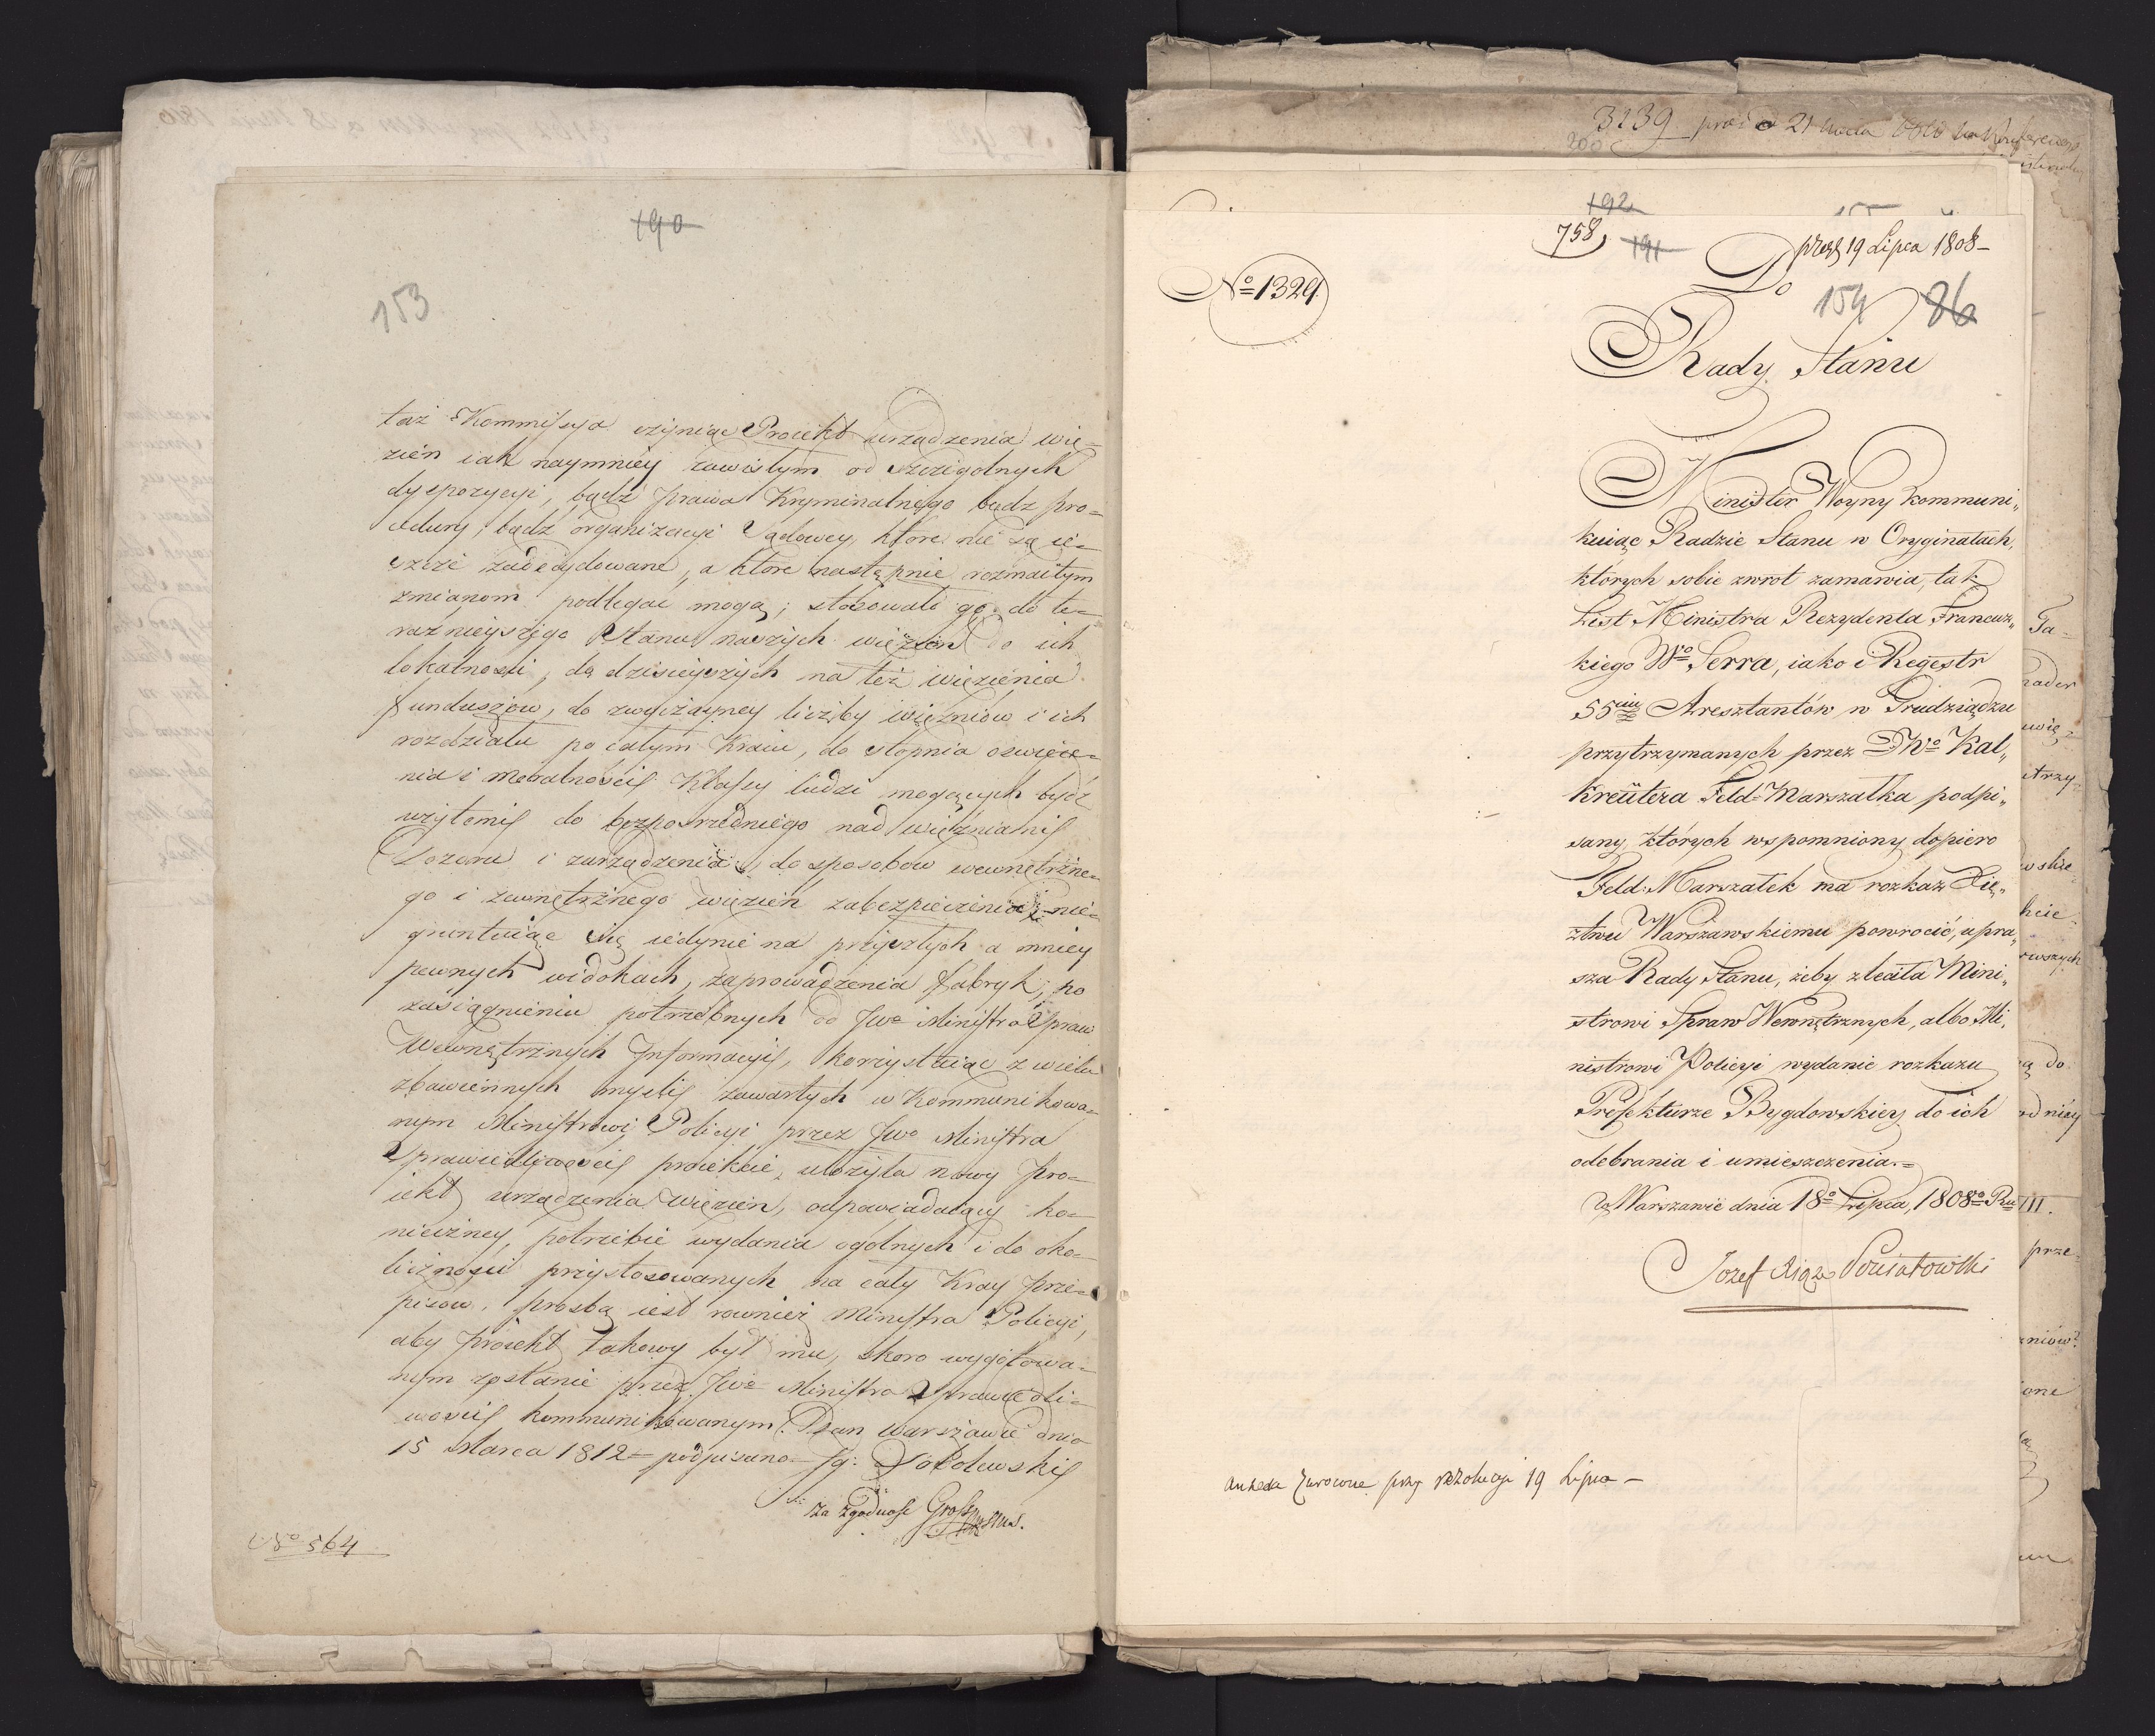 190
153
taż Kommissya czyniąc Proiekt urządzenia wię=
zień iak naymniéy zawisłym od szczegolnych
dyspozycyi, bądź prawa Kryminalnego bądz pro=
cedury, bądz organizacyi Sądowey, które nie są ie=
szcze zadecydowane, a które następnie rozmaitym
zmianom podlegać mogą; stosowała go do te=
raznieyszego Stanu naszych więzien do ich
lokalności, do dzisieyszych na też więzienia
funduszow, do zwyczayney liczby więzniow i ich
rozdziału po całym Kraiu, do stopnia oswiece=
nia i moralności Klassy ludzi mogących bydź
użytemi do bezposredniego nad więźniami
Dozoru i zarządzenia, do sposobow wewnętrzne=
go i zewnętrznego więzień zabezpieczenia; nie=
gruntuiąc się iedynie na przyszłych a mniey
pewnych widokach, zaprowadzenia fabryk, po
zasiągnieniu potrzebnych od Jwo Ministra Spraw
Wewnętrznych Informacyi, korzystaiąc z wielu
zbawiennych mysli zawartych w Kommunikowa=
nym Ministrowi Policyi przez Jwo Ministra
Sprawiedliwości proiekcie, ułożyła nowy pro=
iekt urządzenia więzien, odpowiadaiący ko=
nieczney potrzebie wydania ogolnych i do oko=
liczności przystosowanych na cały Kray prze=
pisow. prosbą iest rownież Ministra Policyi,
aby proiekt takowy był mu, skoro wygotowa=
nym zostanie przez Jwo Ministra Sprawiedli=
wości kommunikowanym. Dan w Warszawie dnia
15 Marca 1812 = podpisano = Ig: Sobolewski
za zgodnosc
No 564
3239
200
192
758, 191
prez 19 Lipca 1808 –
No 1329.
Do
154 86
Rady Stanu
Minister Woyny kommuni„
kuiąc Radzie Stanu w Oryginałach,
których sobie zwrot zamawia, tak
List Ministra Rezydenta Francuz„
kiego Wo Serra, iako i Regestr
55ciu Aresztantów w Grudziądzu
przytrzymanych przez JWo Kal„
kreütera Feld=Marszałka podpi„
sany, których wspomniony dopiero
Feld: Marszałek ma rozkaz Xię„
ztwu Warszawskiemu powrocić, upra„
sza Rady Stanu, żeby zleciła Mini„
strowi Spraw Wewnętrznych, albo Mi„
nistrowi Policyi wydanie rozkazu
Prefekturze Bygdowskiey do ich
odebrania i umieszczenia. =
w Warszawie dnia 18o Lipca, 1808o Ru
Jozef Xiąże Poniatowski
zwrocone przy rezolucyi 19 Lipca –